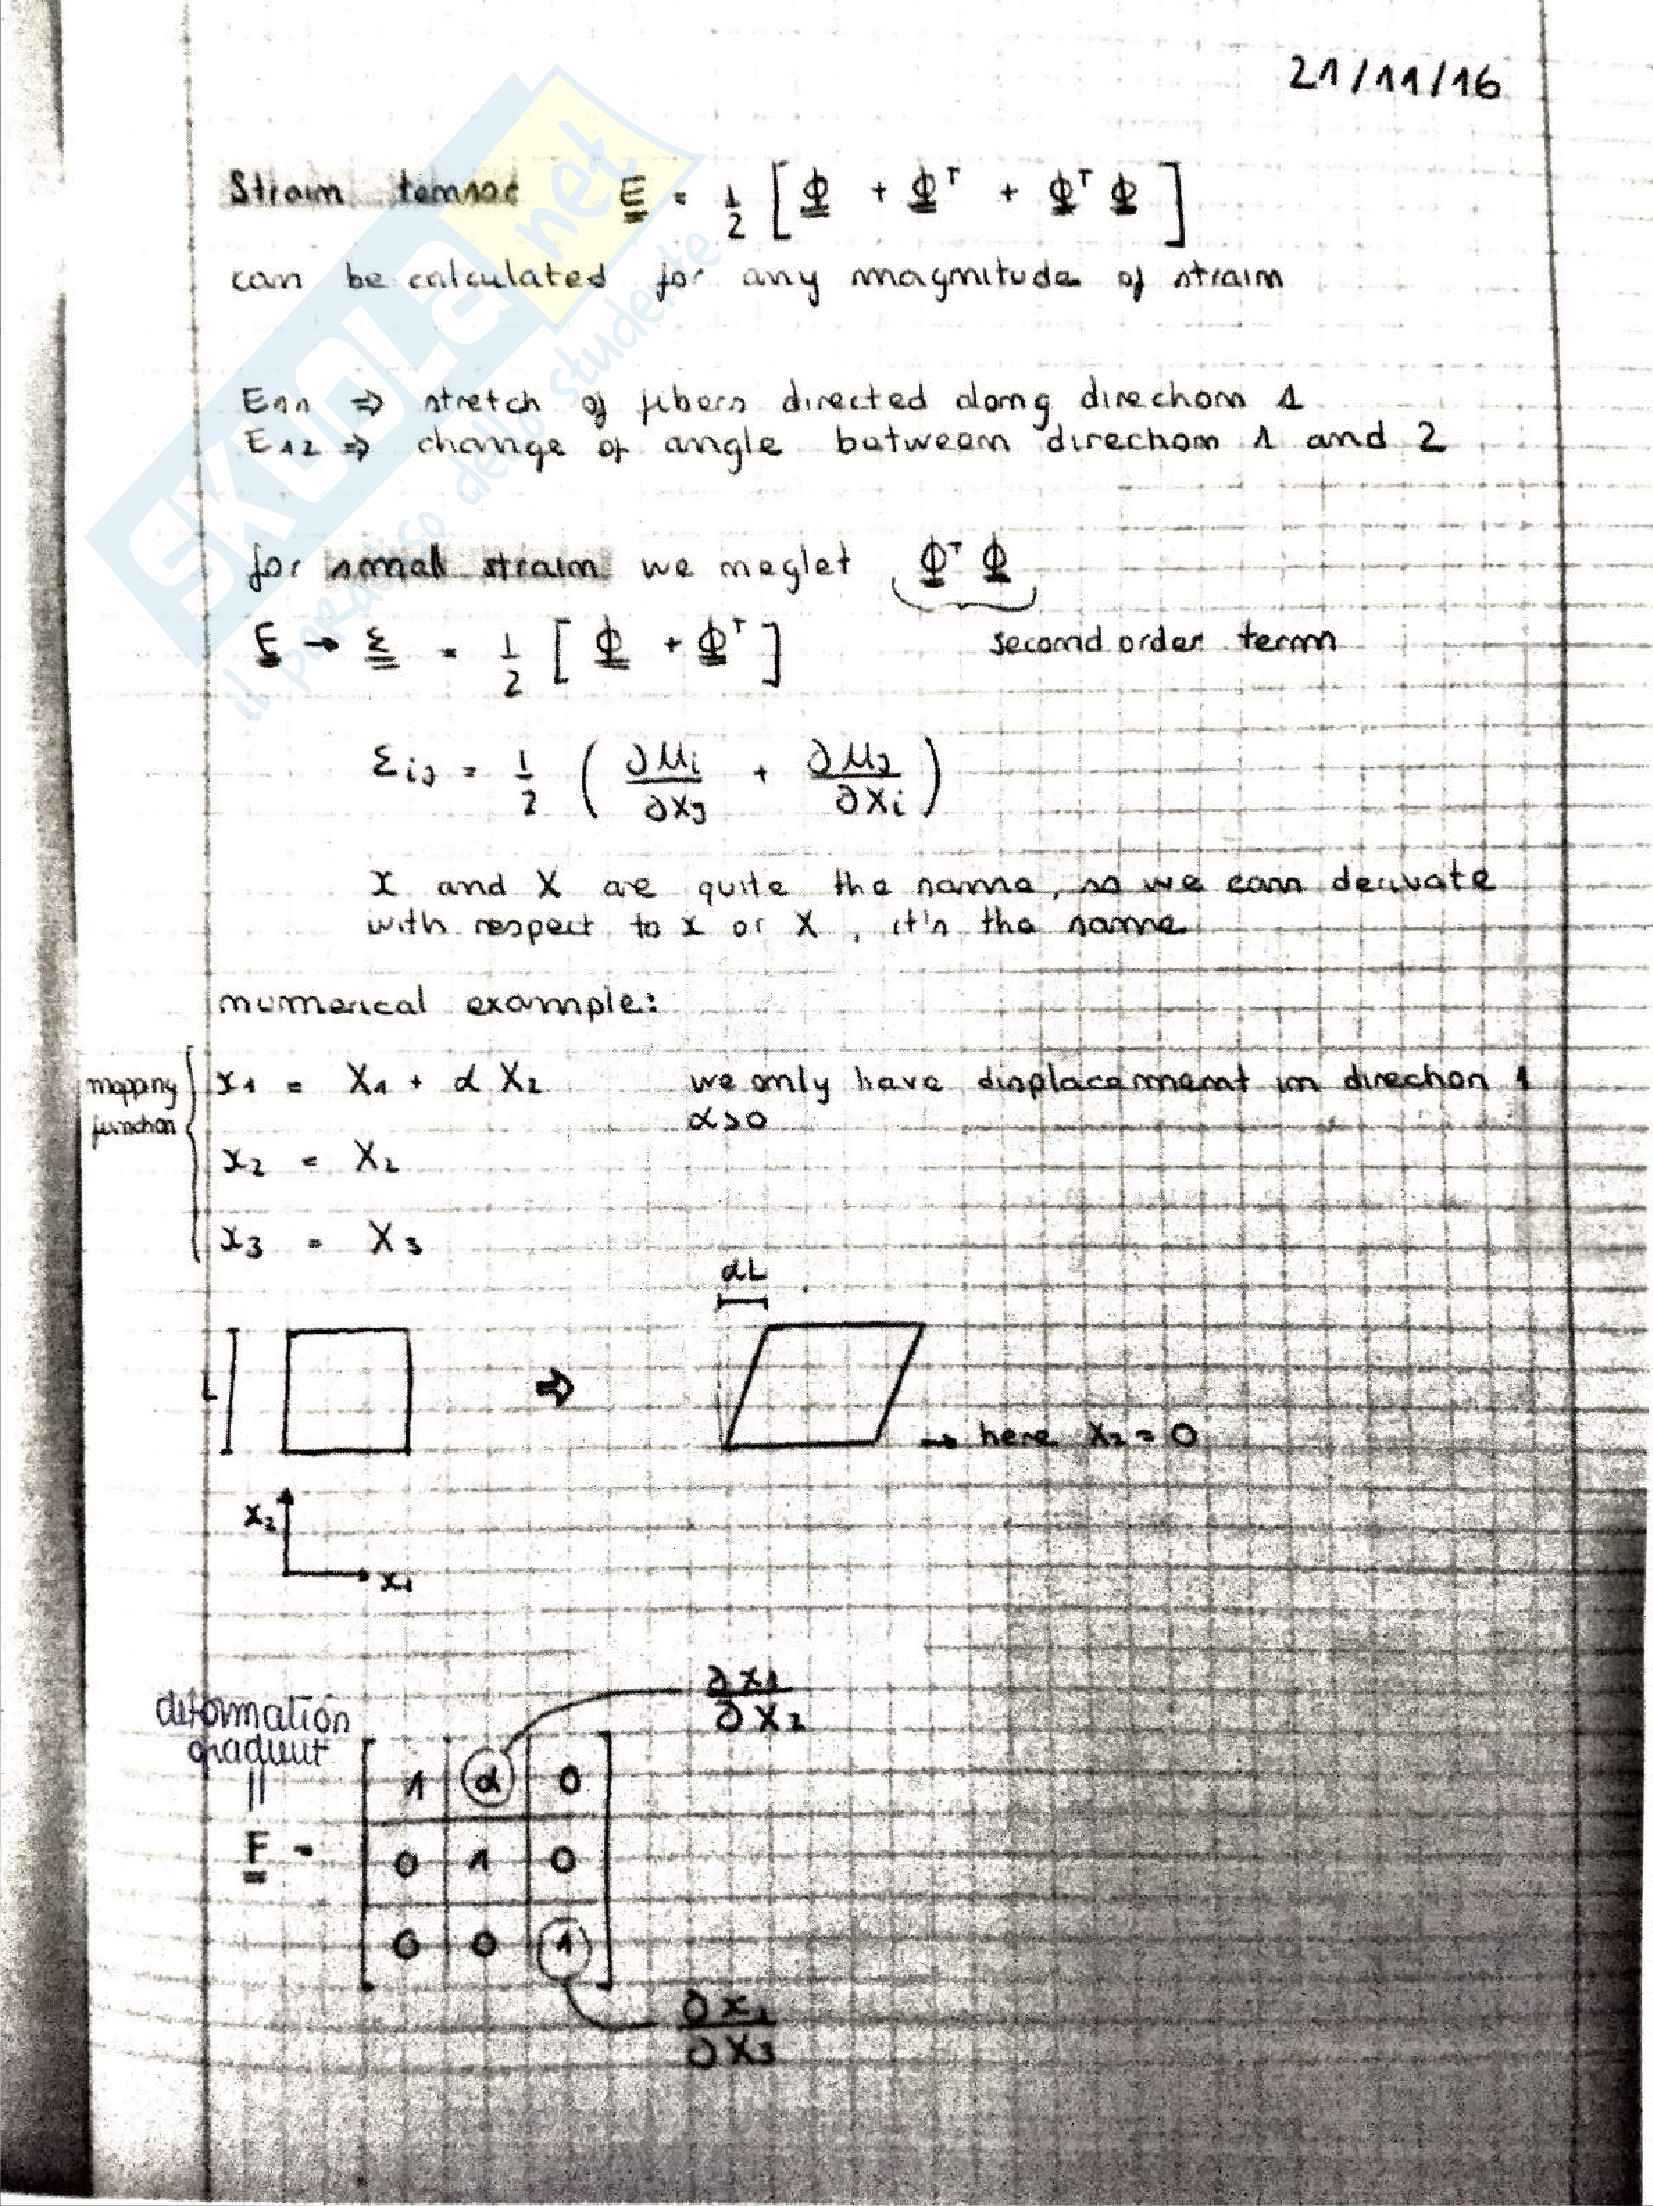 21/11/16
Strain tensor E = 1/2 [ Φ + Φᵀ + Φᵀ Φ ]
can be calculated for any magnitude of strain
E₁₁ ⇒ stretch of fibers directed along direction 1
E₁₂ ⇒ change of angle between direction 1 and 2
for small strain we neglet Φᵀ Φ
second order term
E → ε = 1/2 [ Φ + Φᵀ ]
εij = 1/2 ( ∂ui/∂xj + ∂uj/∂xi )
x and X are quite the same, so we can derivate
with respect to x or X, it's the same
numerical example:
mapping function
x₁ = X₁ + α X₂ we only have displacement in direction 1
α>0
x₂ = X₂
x₃ = X₃
αL
L ⇒
→ here X₂ = 0
x₂
x₁
deformation
gradient
∂x₁/∂X₂
F = [ 1 α 0
0 1 0
0 0 1 ]
∂x₃/∂X₃
SKUOLA.net
il paradiso dello studente